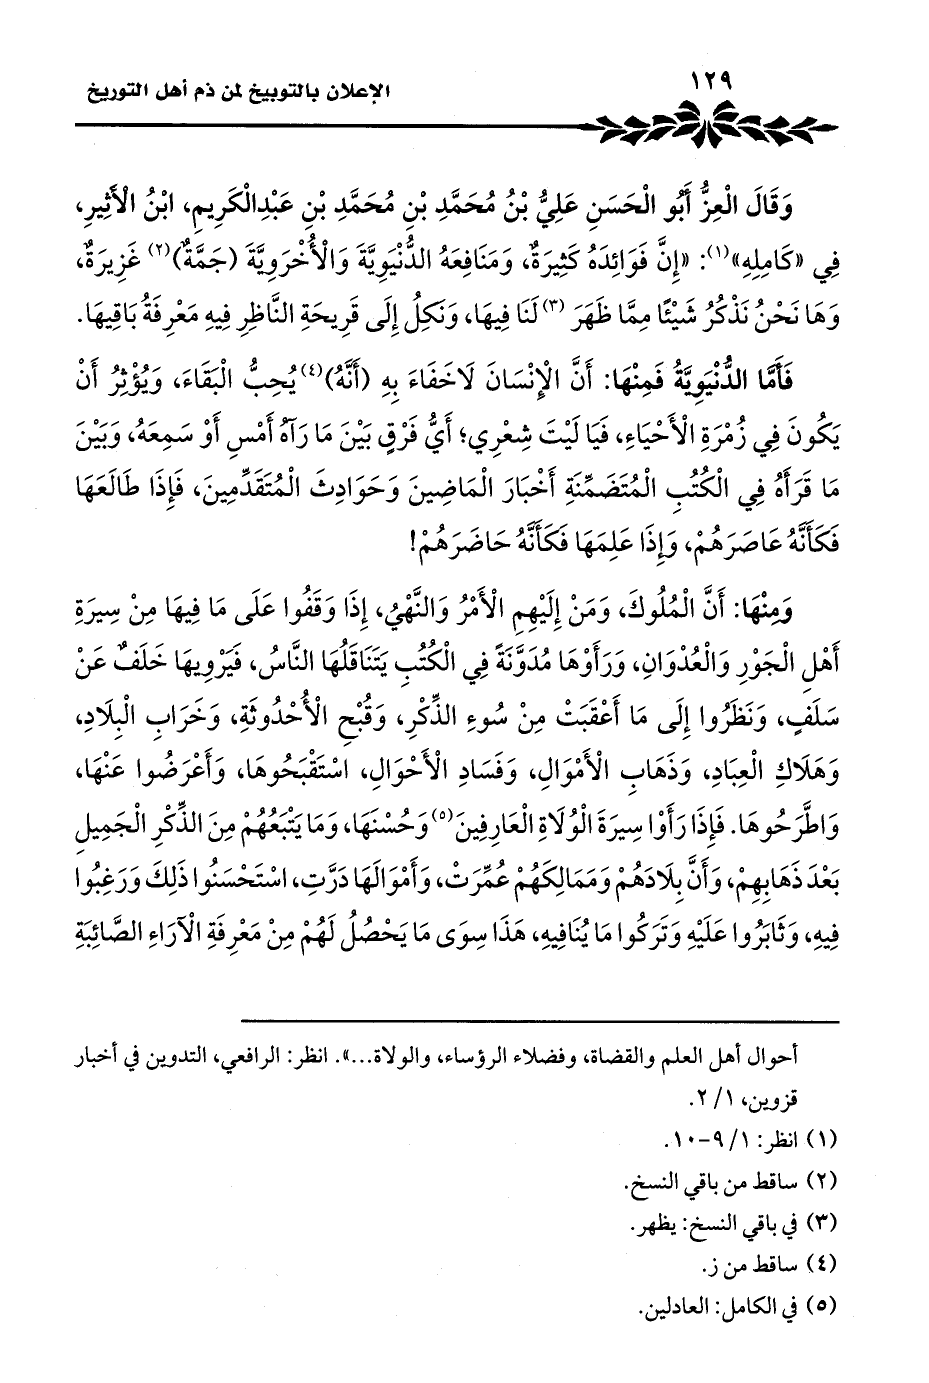 ١٢٩
الإعلان بالتوبيخ لمن ذم أهل التوريخ
وَقَالَ الْعِزُّ أَبُو الْحَسَنِ عَلِيُّ بْنُ مُحَمَّدِ بْنِ مُحَمَّدِ بْنِ عَبْدِالْكَرِيمِ، ابْنُ الْأَثِيرِ،
فِي «كَامِلِهِ»(١): «إِنَّ فَوَائِدَهُ كَثِيرَةٌ، وَمَنَافِعَهُ الدُّنْيَوِيَّةَ وَالْأُخْرَوِيَّةَ (جَمَّةٌ)(٢) غَزِيرَةٌ،
وَهَا نَحْنُ نَذْكُرُ شَيْئًا مِمَّا ظَهَرَ (٣) لَنَا فِيهَا، وَنَكِلُ إِلَى قَرِيحَةِ النَّاظِرِ فِيهِ مَعْرِفَةُ بَاقِيهَا.
فَأَمَّا الدُّنْيَوِيَّةُ فَمِنْهَا: أَنَّ الْإِنْسَانَ لَا خَفَاءَ بِهِ (أَنَّهُ)(٤) يُحِبُّ الْبَقَاءَ، وَيُؤْثِرُ أَنْ
يَكُونَ فِي زُمْرَةِ الْأَحْيَاءِ، فَيَا لَيْتَ شِعْرِي؛ أَيُّ فَرْقٍ بَيْنَ مَا رَآهُ أَمْسِ أَوْ سَمِعَهُ، وَبَيْنَ
مَا قَرَأَهُ فِي الْكُتُبِ الْمُتَضَمِّنَةِ أَخْبَارَ الْمَاضِينَ وَحَوَادِثَ الْمُتَقَدِّمِينَ، فَإِذَا طَالَعَهَا
فَكَأَنَّهُ عَاصَرَهُمْ، وَإِذَا عَلِمَهَا فَكَأَنَّهُ حَاضَرَهُمْ!
وَمِنْهَا: أَنَّ الْمُلُوكَ، وَمَنْ إِلَيْهِمِ الْأَمْرُ وَالنَّهْيُ، إِذَا وَقَفُوا عَلَى مَا فِيهَا مِنْ سِيرَةِ
أَهْلِ الْجَوْرِ وَالْعُدْوَانِ، وَرَأَوْهَا مُدَوَّنَةً فِي الْكُتُبِ يَتَنَاقَلُهَا النَّاسُ، فَيَرْوِيهَا خَلَفٌ عَنْ
سَلَفٍ، وَنَظَرُوا إِلَى مَا أَعْقَبَتْ مِنْ سُوءِ الذِّكْرِ، وَقُبْحِ الْأُحْدُوثَةِ، وَخَرَابِ الْبِلَادِ،
وَهَلَاكِ الْعِبَادِ، وَذَهَابِ الْأَمْوَالِ، وَفَسَادِ الْأَحْوَالِ، اسْتَقْبَحُوهَا، وَأَعْرَضُوا عَنْهَا،
وَاطَّرَحُوهَا. فَإِذَا رَأَوْا سِيرَةَ الْوُلَاةِ الْعَارِفِينَ(٥) وَحُسْنَهَا، وَمَا يَتْبَعُهُمْ مِنَ الذِّكْرِ الْجَمِيلِ
بَعْدَ ذَهَابِهِمْ، وَأَنَّ بِلَادَهُمْ وَمَمَالِكَهُمْ عُمِّرَتْ، وَأَمْوَالَهَا دَرَّتِ، اسْتَحْسَنُوا ذَلِكَ وَرَغِبُوا
فِيهِ، وَثَابَرُوا عَلَيْهِ وَتَرَكُوا مَا يُنَافِيهِ، هَذَا سِوَى مَا يَحْصُلُ لَهُمْ مِنْ مَعْرِفَةِ الْآرَاءِ الصَّائِبَةِ
أحوال أهل العلم والقضاة، وفضلاء الرؤساء، والولاة...». انظر: الرافعي، التدوين في أخبار
قزوين، ١/ ٢.
(١) انظر: ١/ ٩-١٠.
(٢) ساقط من باقي النسخ.
(٣) في باقي النسخ: يظهر.
(٤) ساقط من ز.
(٥) في الكامل: العادلين.